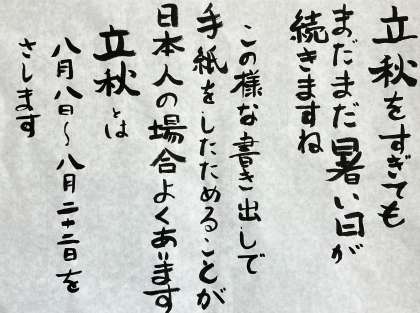 立秋をすぎても
まだまだ暑い日が
続きますね
この様な書き出しで
手紙をしたためることが
日本人の場合よくあります
立秋とは
八月八日〜八月二十二日を
さします